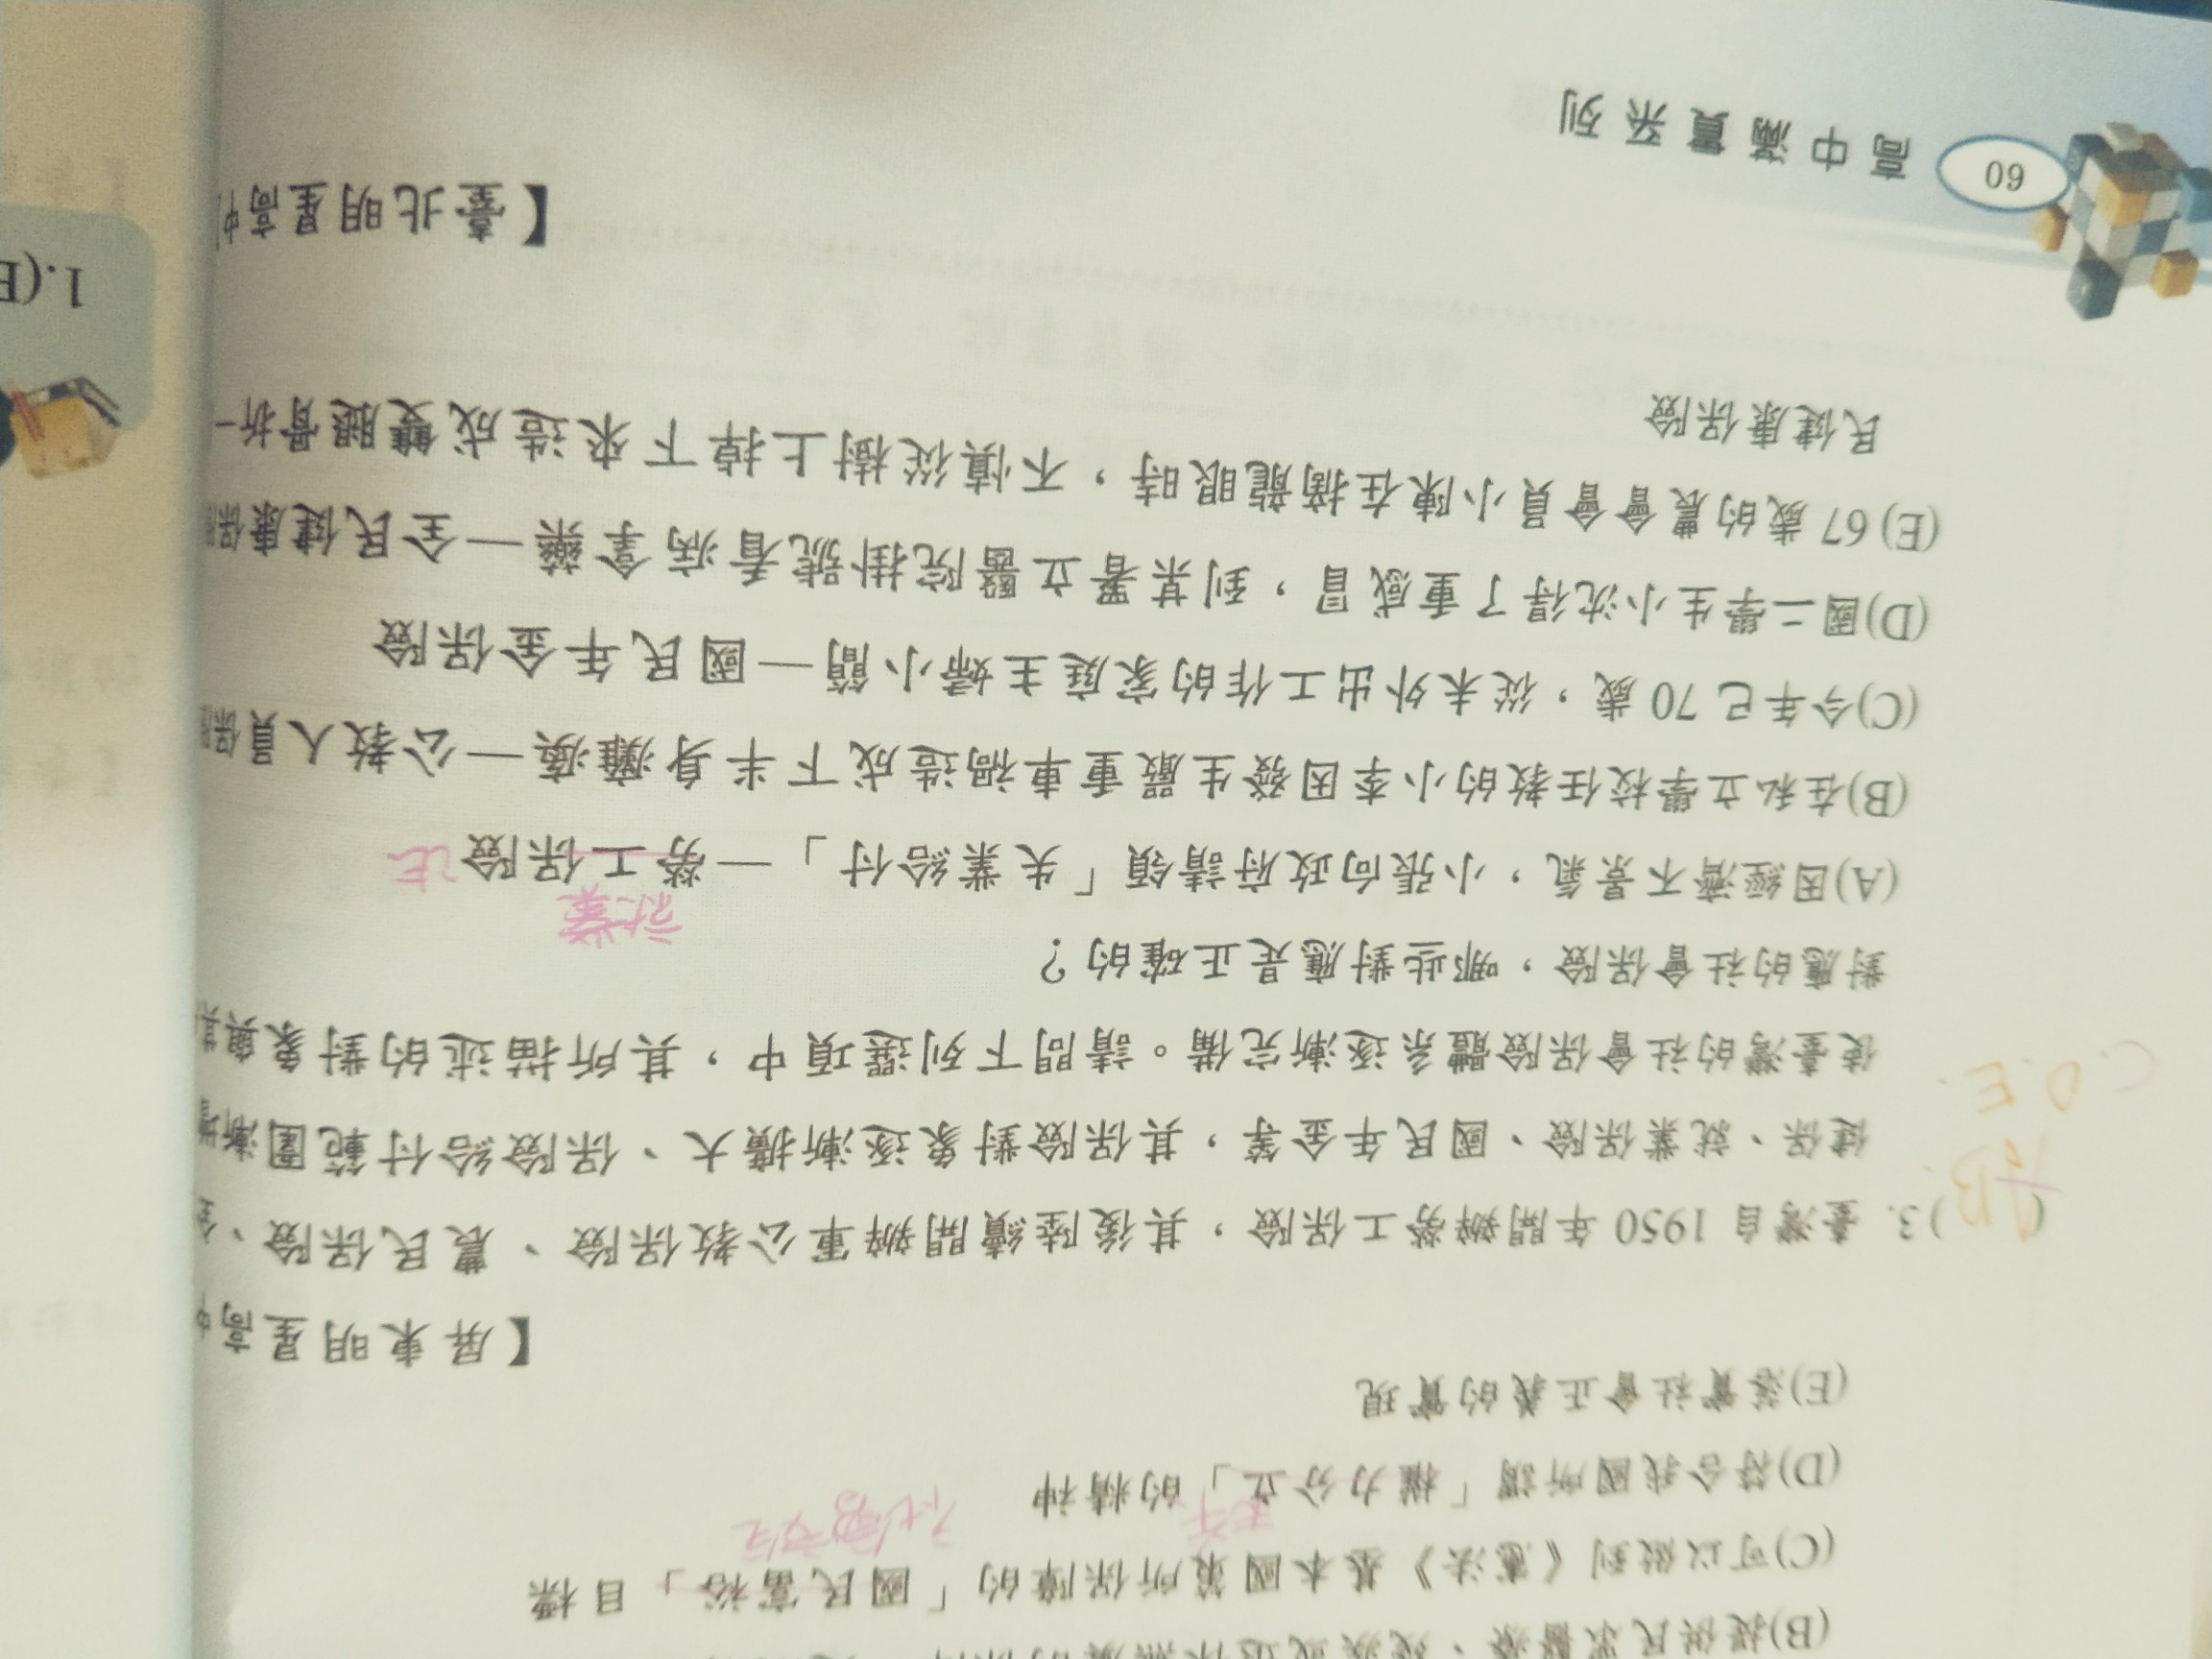 (B)提供民眾醫療、
(C)可以做到《憲法》基本國策所保障的「國民富裕」目標
(D)符合我國所謂「權力分立」的精神
(E)落實社會正義的實現
【屏東明星高中
( )3. 臺灣自 1950 年開辦勞工保險，其後陸續開辦軍公教保險、農民保險、全
AB.
C.D.E.
健保、就業保險、國民年金等，其保險對象逐漸擴大、保險給付範圍漸增
使臺灣的社會保險體系逐漸完備。請問下列選項中，其所描述的對象與其
對應的社會保險，哪些對應是正確的？
就業
(A)因經濟不景氣，小張向政府請領「失業給付」—勞工保險
(B)在私立學校任教的小李因發生嚴重車禍造成下半身癱瘓—公教人員保
(C)今年已 70 歲，從未外出工作的家庭主婦小簡—國民年金保險
(D)國二學生小沈得了重感冒，到某署立醫院掛號看病拿藥—全民健康保
(E) 67 歲的農會會員小陳在摘龍眼時，不慎從樹上掉下來造成雙腿骨折—
民健康保險
【臺北明星高中
60 高中滿貫系列
1.(E